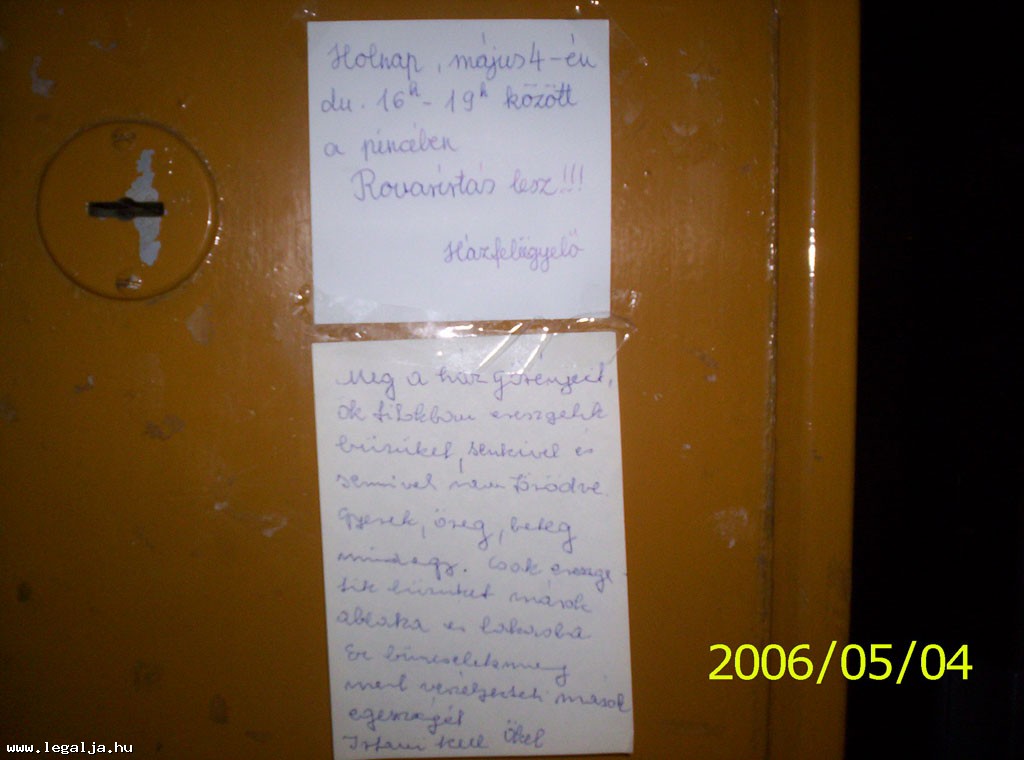 Holnap, május 4-én
du. 16h - 19h között
a pincében
Rovarirtás lesz!!!
Házfelügyelő
Meg a ház görényeit,
ők titokban eresztgetik
bűzüket, senkivel és
semmivel nem törődve.
Gyerek, öreg, beteg
mindegy. Csak ereszge-
tik bűzüket mások
ablaka és lakásába
Ez bűncselekmény
mert veszélyezteti mások
egészségét
Irtani kell Őket
2006/05/04
www.legalja.hu